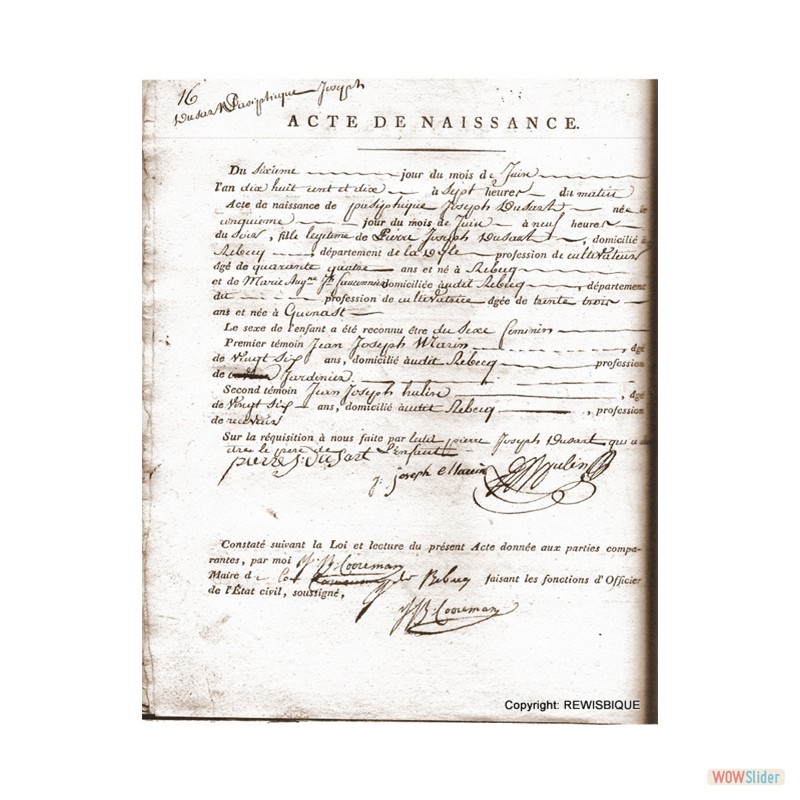 16
Dusart Pasiphique Joseph
ACTE DE NAISSANCE.
Du sixieme jour du mois de Juin
l'an dix huit cent et dix à sept heures du matin
Acte de naissance de pasiphique Joseph Dusart née le
cinquieme jour du mois de Juin à neuf heures
du soir, fille legitime de Pierre Joseph Dusart, domicilié à
Rebecq, département de la Dyle profession de cultivateur
âgé de quarante quatre ans et né à Rebecq
et de Marie domiciliée audit Rebecq, département
du profession de cultivatrice âgée de trente trois
ans et née à Quenast
Le sexe de l'enfant a été reconnu être du sexe feminin
Premier témoin Jean Joseph Marin, âgé
de vingt six ans, domicilié audit Rebecq profession
de Jardinier
Second témoin Jean Joseph hulin, âgé
de vingt six ans, domicilié audit Rebecq, profession
de receveur
Sur la réquisition à nous faite par ledit pierre Joseph Dusart qui a dit
être le pere de L'enfant
pierre J: Dusart
J: joseph Marin
JJ hulin
Constaté suivant la Loi et lecture du présent Acte donnée aux parties compa-
rantes, par moi J. B. Cooreman
Maire de Rebecq faisant les fonctions d'Officier
de l'État civil, soussigné,
J. B. Cooreman
Copyright: REWISBIQUE
WOWSlider